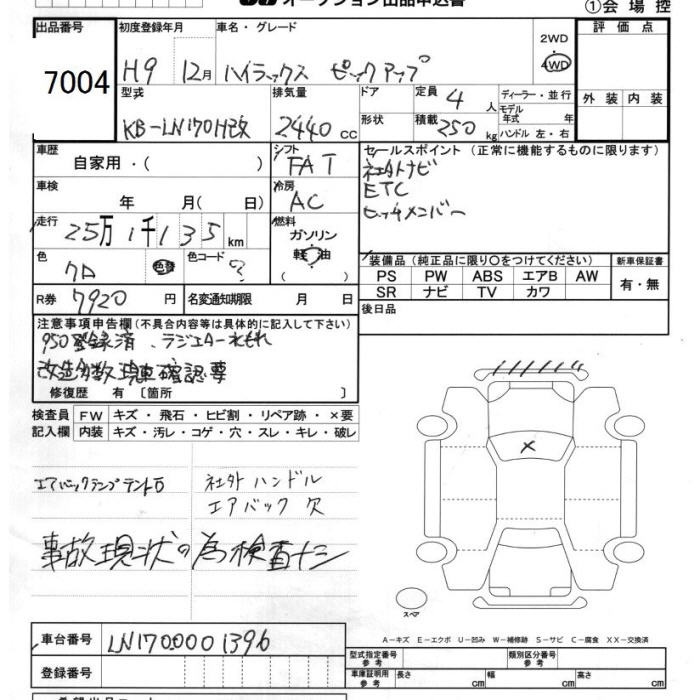 オークション出品申込書
①会場控
出品番号 初度登録年月 車名・グレード 2WD 評価点
7004 H9 12月 ハイラックス ピックアップ 4WD
型式 排気量 ドア 定員 4 人 ディーラー・並行 外装 内装
モデル年式 年
KB-LN170H改 2440 cc 形状 積載 250 kg ハンドル 左・右
車歴 シフト セールスポイント (正常に機能するものに限ります)
自家用・( ) FAT 社外ナビ
車検 冷房 ETC
年 月( 日) AC ヒッチメンバー
走行 燃料
25万1千135 km ガソリン
軽油
色 色コード 装備品(純正品に限り○をつけてください) 新車保証書
クロ 色替 ? PS PW ABS エアB AW 有・無
SR ナビ TV カワ
R券 7920 円 名変通知期限 月 日 後日品
注意事項申告欄(不具合内容等は具体的に記入して下さい)
950登録済、ラジエター水もれ
改造多数現車確認要
修復歴 有 〔箇所 〕
検査員 FW キズ・飛石・ヒビ割・リペア跡・×要
記入欄 内装 キズ・汚レ・コゲ・穴・スレ・キレ・破レ
×
エアバックランプテントウ 社外ハンドル
エアバック欠
事故現状の為検査ナシ
スペア
A－キズ E－エクボ U－凹み W－補修跡 S－サビ C－腐食 XX－交換済
車台番号 LN170.0001396
型式指定番号 参考 類別区分番号 参考
登録番号 車庫証明用 参考 長さ cm 幅 cm 高さ cm